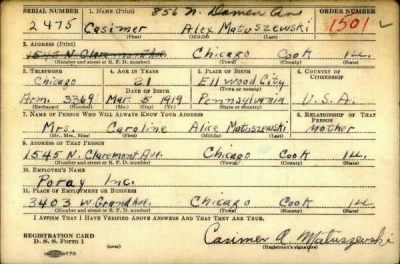 SERIAL NUMBER 1. NAME (Print) 856 N. Damen Av ORDER NUMBER
2475 Casimer Alex Matuszewski 1501
(First) (Middle) (Last)
2. ADDRESS (Print)
1545 N. Claremont Ave. Chicago Cook Ill.
(Number and street or R. F. D. number) (Town) (County) (State)
3. TELEPHONE 4. AGE IN YEARS 5. PLACE OF BIRTH 6. COUNTRY OF CITIZENSHIP
Chicago 21 Ellwood City
DATE OF BIRTH
Arm. 3369 Mar. 25 1919 Pennsylvania U.S.A.
(Exchange) (Number) (Mo.) (Day) (Yr.) (State or country)
7. NAME OF PERSON WHO WILL ALWAYS KNOW YOUR ADDRESS 8. RELATIONSHIP OF THAT PERSON
Mrs. Caroline Alice Matuszewski Mother
(Mr., Mrs., Miss) (First) (Middle) (Last)
9. ADDRESS OF THAT PERSON
1545 N. Claremont Ave. Chicago Cook Ill.
(Number and street or R. F. D. number) (Town) (County) (State)
10. EMPLOYER'S NAME
Poray Inc.
11. PLACE OF EMPLOYMENT OR BUSINESS
3403 W. Grand Ave. Chicago Cook Ill.
(Number and street or R. F. D. number) (Town) (County) (State)
I AFFIRM THAT I HAVE VERIFIED ABOVE ANSWERS AND THAT THEY ARE TRUE.
REGISTRATION CARD
D. S. S. Form 1 Casimer A. Matuszewski
(Registrant's signature)